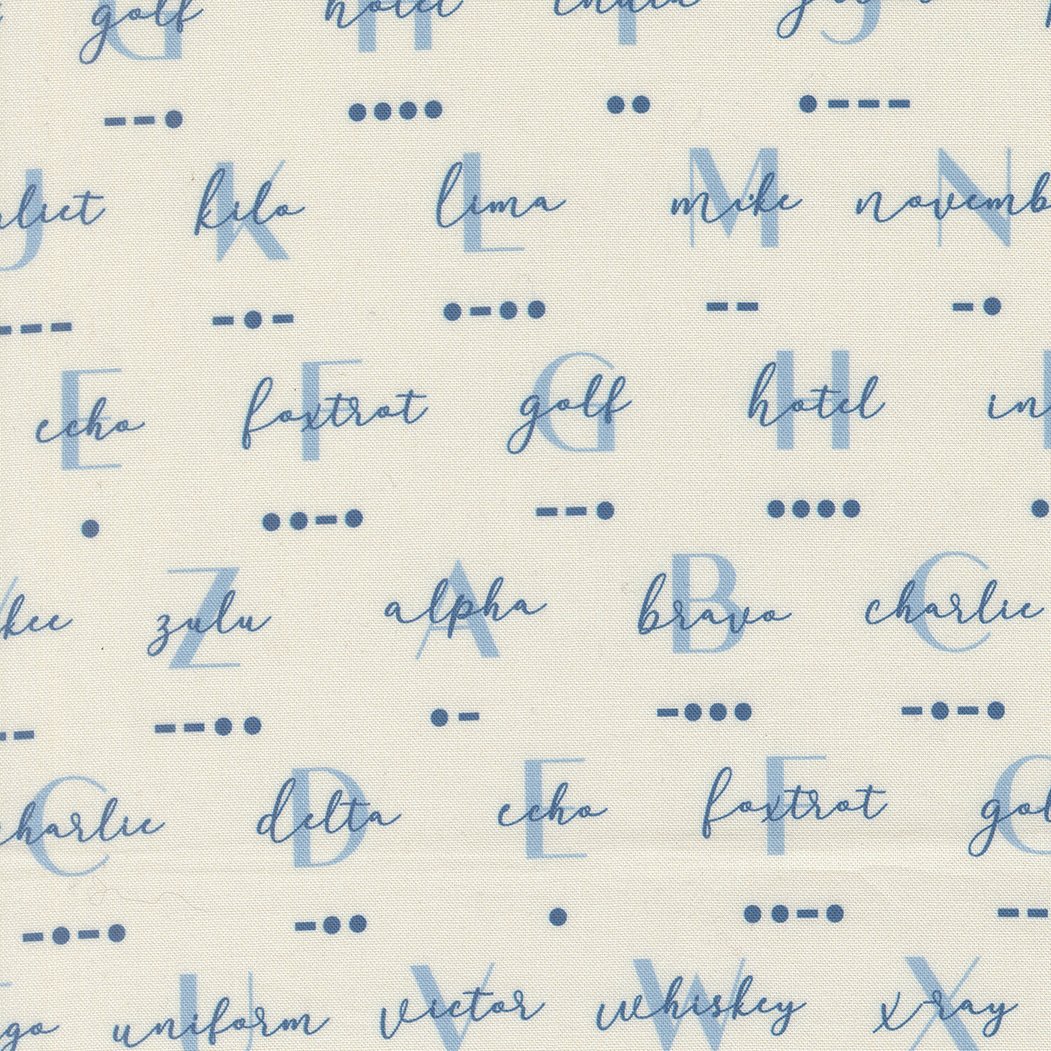 G golf H hotel I india J
--• •••• •• •---
J K kilo L lima M mike N novemb
--- -•- •-•• -- -•
E echo F foxtrot G golf H hotel in
• ••-• --• •••• •
kee Z zulu A alpha B bravo C charlie
-- --•• •- -••• -•-•
C charlie D delta E echo F foxtrot G gol
-•-• -•• • ••-• --
go U uniform V victor W whiskey X x-ray